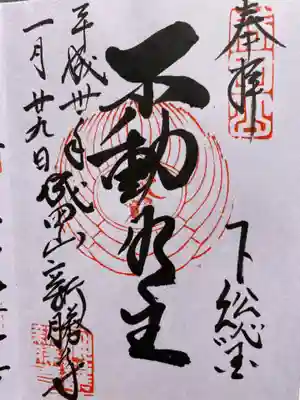 奉拝
下総國
不動明王
平成卅一年
一月廿九日成田山新勝寺